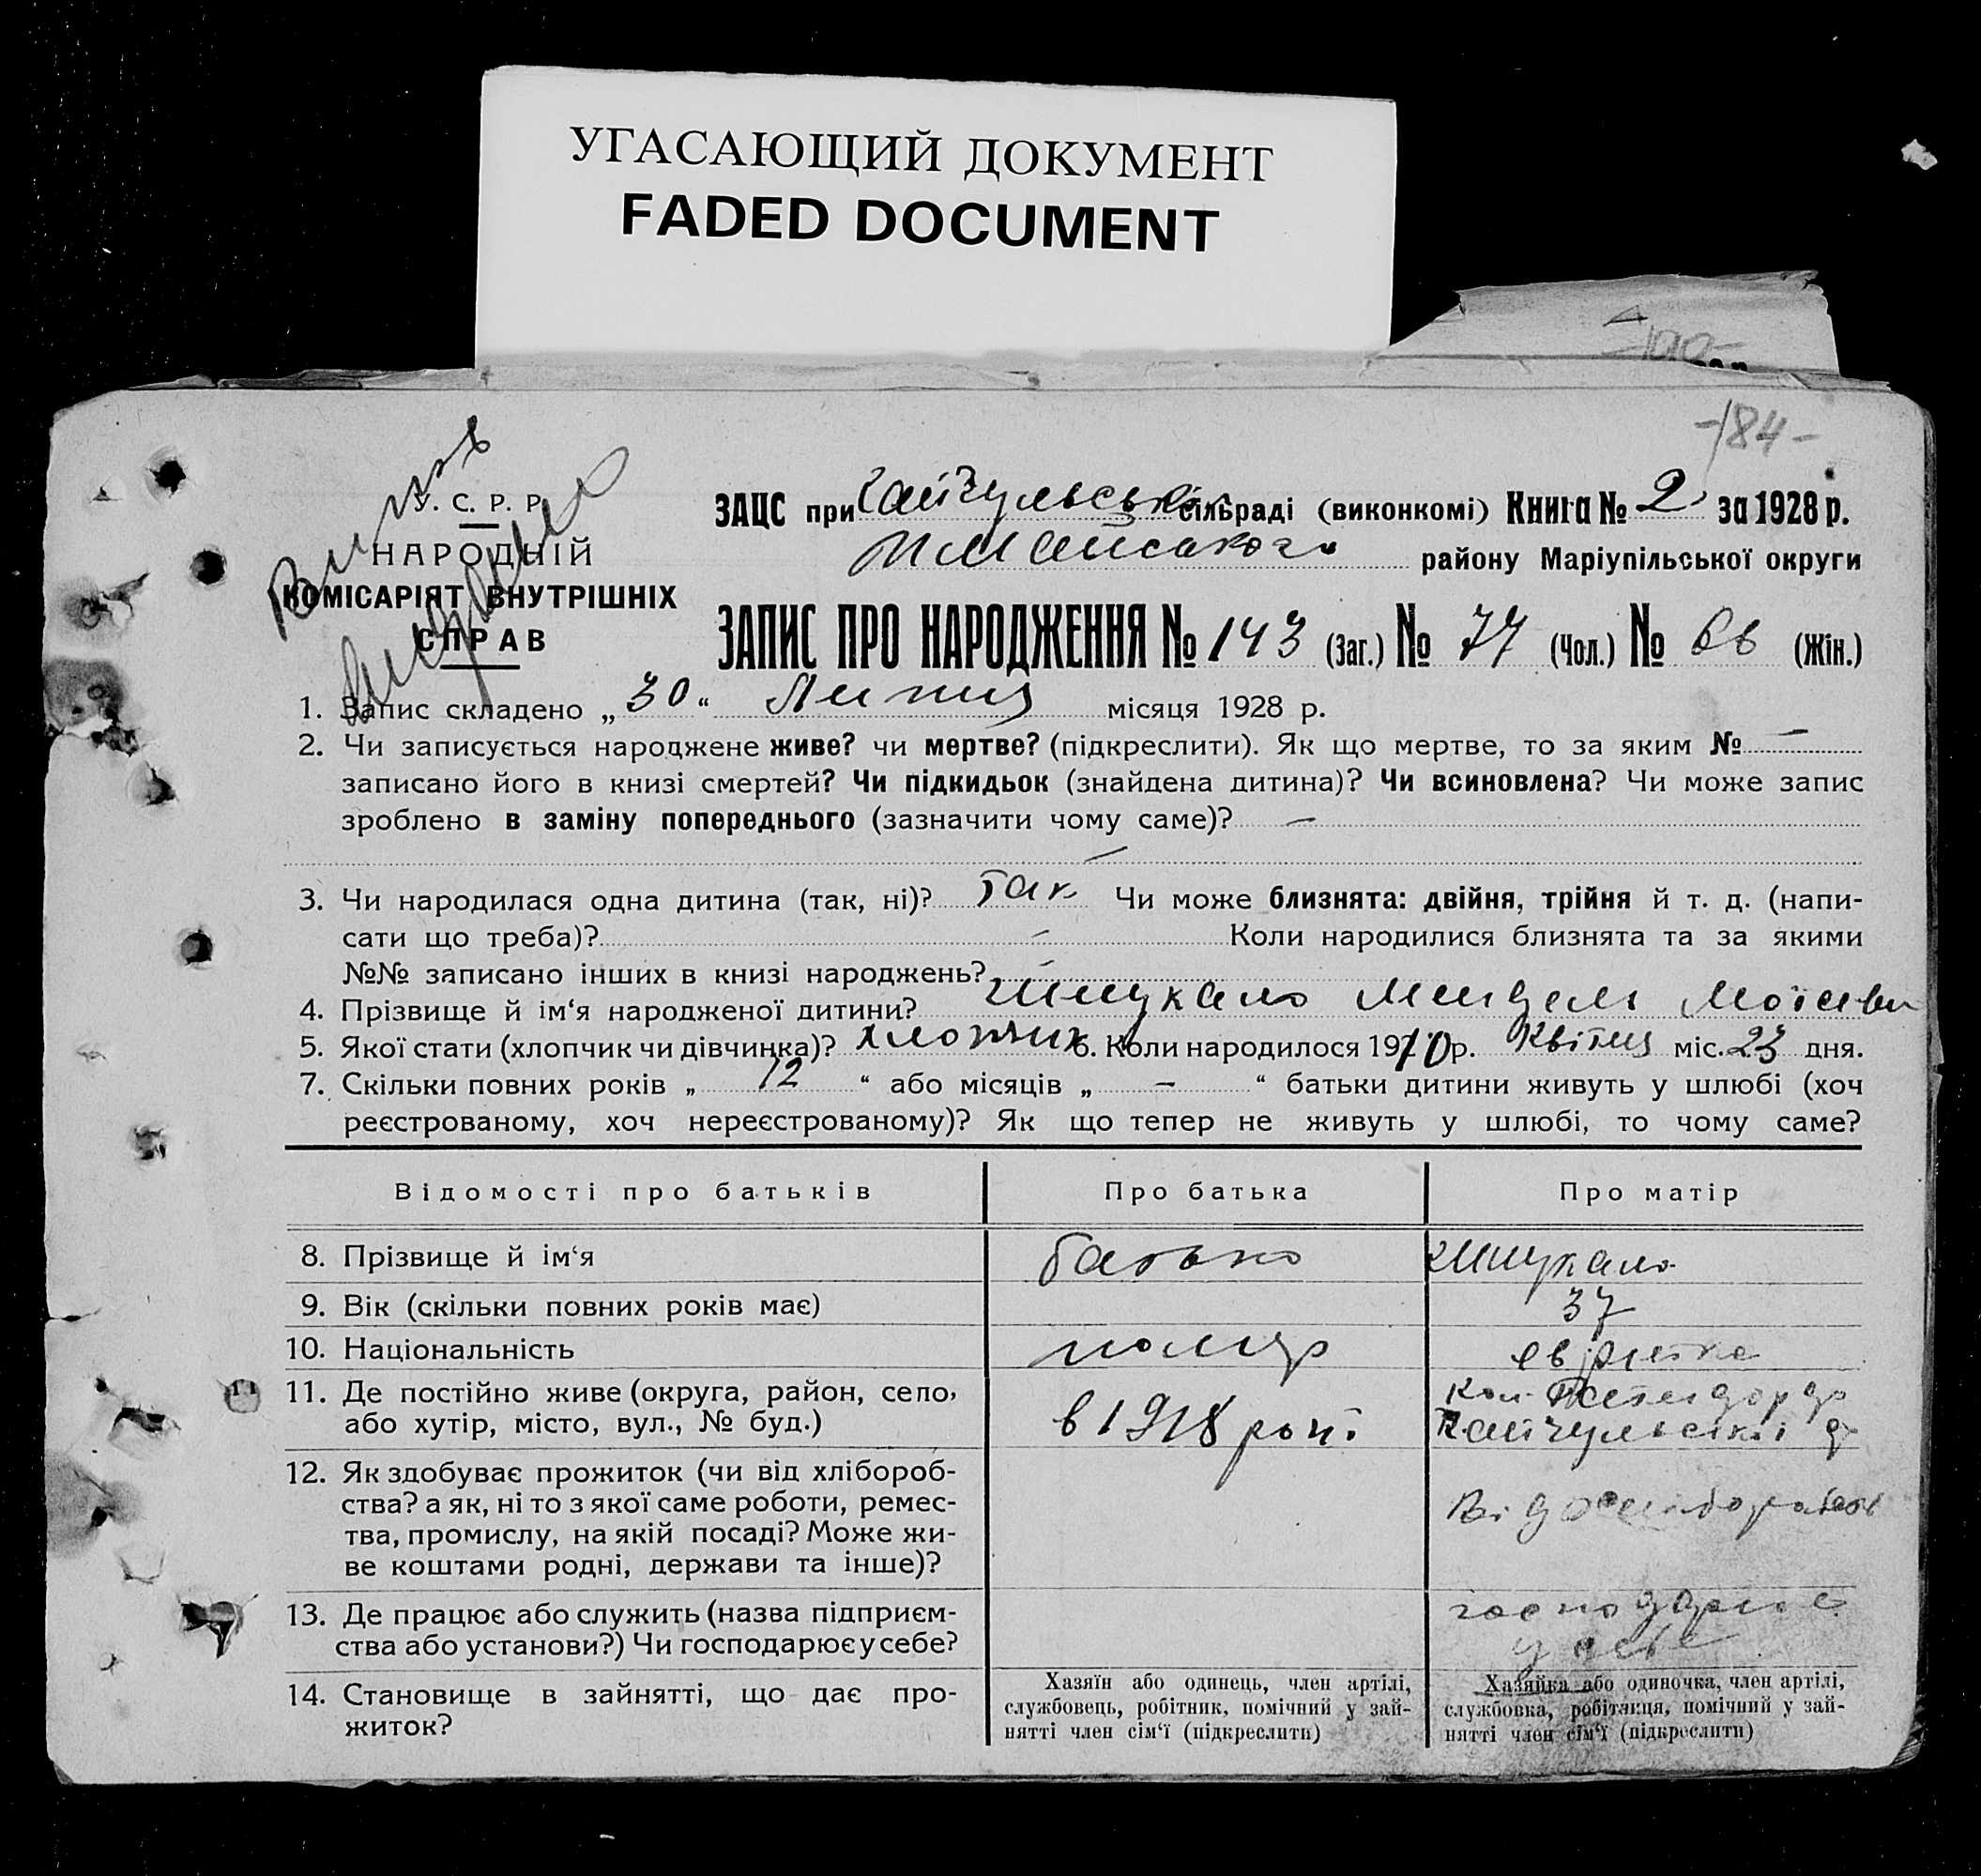 УГАСАЮЩИЙ ДОКУМЕНТ
FADED DOCUMENT
-184-
У. С. Р. Р.
НАРОДНІЙ
КОМІСАРІЯТ ВНУТРІШНІХ
СПРАВ
ЗАЦС при Гайчульській сільраді (виконкомі) Книга № 2 за 1928 р.
району Маріупільської округи
ЗАПИС ПРО НАРОДЖЕННЯ № 143 (Заг.) № 77 (Чол.) № 66 (Жін.)
1. Запис складено „30“ Липня місяця 1928 р.
2. Чи записується народжене живе? чи мертве? (підкреслити). Як що мертве, то за яким № —
записано його в книзі смертей? Чи підкидьок (знайдена дитина)? Чи всиновлена? Чи може запис
зроблено в заміну попереднього (зазначити чому саме)? —
—
3. Чи народилася одна дитина (так, ні)? Так Чи може близнята: двійня, трійня й т. д. (напи-
сати що треба)? — Коли народилися близнята та за якими
№№ записано інших в книзі народжень? —
4. Прізвище й ім‘я народженої дитини? Шпукало Мендель
5. Якої стати (хлопчик чи дівчинка)? хлопчик 6. Коли народилося 1910 р. Квітня міс. 23 дня.
7. Скільки повних років „ 12 “ або місяців „ — “ батьки дитини живуть у шлюбі (хоч
реєстрованому, хоч нереєстрованому)? Як що тепер не живуть у шлюбі, то чому саме?
Відомості про батьків Про батька Про матір
8. Прізвище й ім‘я батько Шпукало
9. Вік (скільки повних років має) 37
10. Національність помер еврейка
11. Де постійно живе (округа, район, село, кол.
або хутір, місто, вул., № буд.) в 1918 роті Гайчульської
12. Як здобуває прожиток (чи від хлібороб-
ства? а як, ні то з якої саме роботи, ремес-
тва, промислу, на якій посаді? Може жи-
ве коштами родні, держави та інше)?
13. Де працює або служить (назва підприєм- господарює
ства або установи?) Чи господарює у себе? у себе
14. Становище в зайнятті, що дає про-
житок?
Хазяїн або одинець, член артілі,
службовець, робітник, помічний у зай-
нятті член сім‘ї (підкреслити)
Хазяйка або одиночка, член артілі,
службовка, робітниця, помічний у зай-
нятті член сім‘ї (підкреслити)